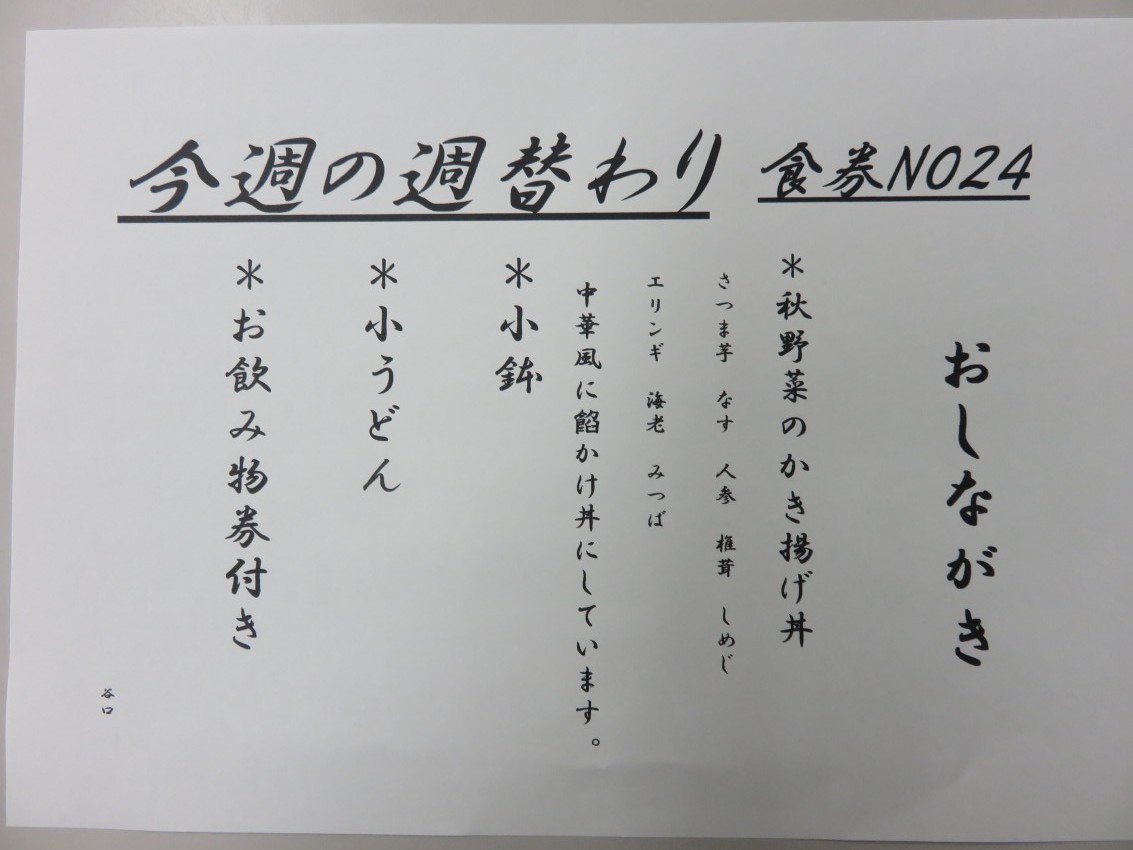 今週の週替わり 食券NO24
おしながき
＊秋野菜のかき揚げ丼
さつま芋 なす 人参 椎茸 しめじ
エリンギ 海老 みつば
中華風に餡かけ丼にしています。
＊小鉢
＊小うどん
＊お飲み物券付き
谷口